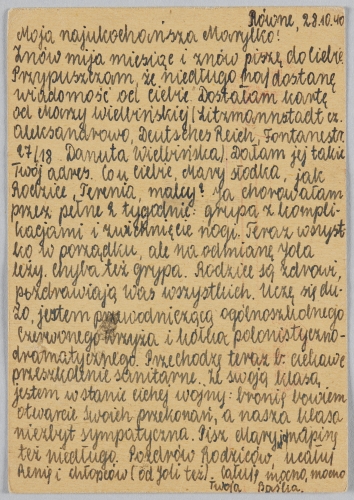 Równe, 28.10.40
Moja najukochańsza Marylko!
Znów mija miesiąc i znów piszę do Ciebie.
Przypuszczam, że niedługo dostanę
wiadomość od Ciebie. Dostałam kartę
od Marzy Wielbińskiej (Litzmannstadt cz.
Aleksandrowo, Deutsches Reich, Fontanestr.
27/18. Danuta Wielbińska). Dałam jej także
Twój adres. Co u Ciebie, Mary słodka, jak
Rodzice, Terenia, malcy? Ja chorowałam
przez pełne 2 tygodnie: grypa z kompli-
kacjami i zwichnięcie nogi. Teraz wszyst-
ko w porządku, ale na odmianę Jola
leży, chyba też grypa. Rodzice są zdrowi,
pozdrawiają Was wszystkich. Uczę się du-
żo, jestem przewodniczącą ogólnoszkolnego
Czerwonego Krzyża i kółka polonistyczno-
dramatycznego. Przechodzę teraz b. ciekawe
przeszkolenie sanitarne. Ze swoją klasą
jestem w stanie cichej wojny: bronię bowiem
otwarcie swoich przekonań, a nasza klasa
niezbyt sympatyczna. Pisz Mary, napisz
też niedługo. Pozdrów Rodziców, ucałuj
Renię i chłopców (od Joli też). Całuję mocno, mocno
Twoja Basia.